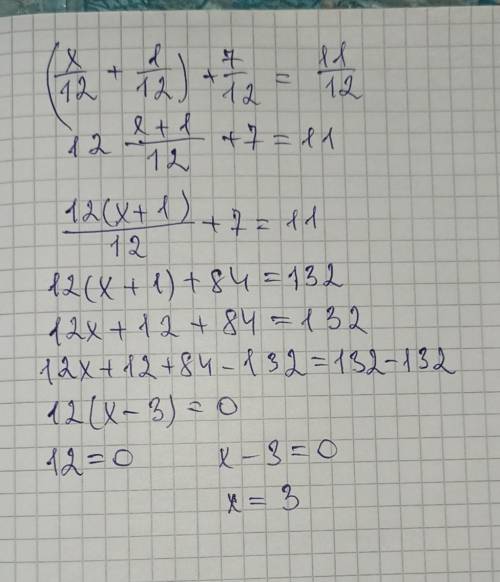 (x/12 + 1/12) + 7/12 = 11/12
12 x+1/12 + 7 = 11
12(x+1)/12 + 7 = 11
12(x + 1) + 84 = 132
12x + 12 + 84 = 132
12x + 12 + 84 - 132 = 132 - 132
12(x - 3) = 0
12 = 0 x - 3 = 0
x = 3